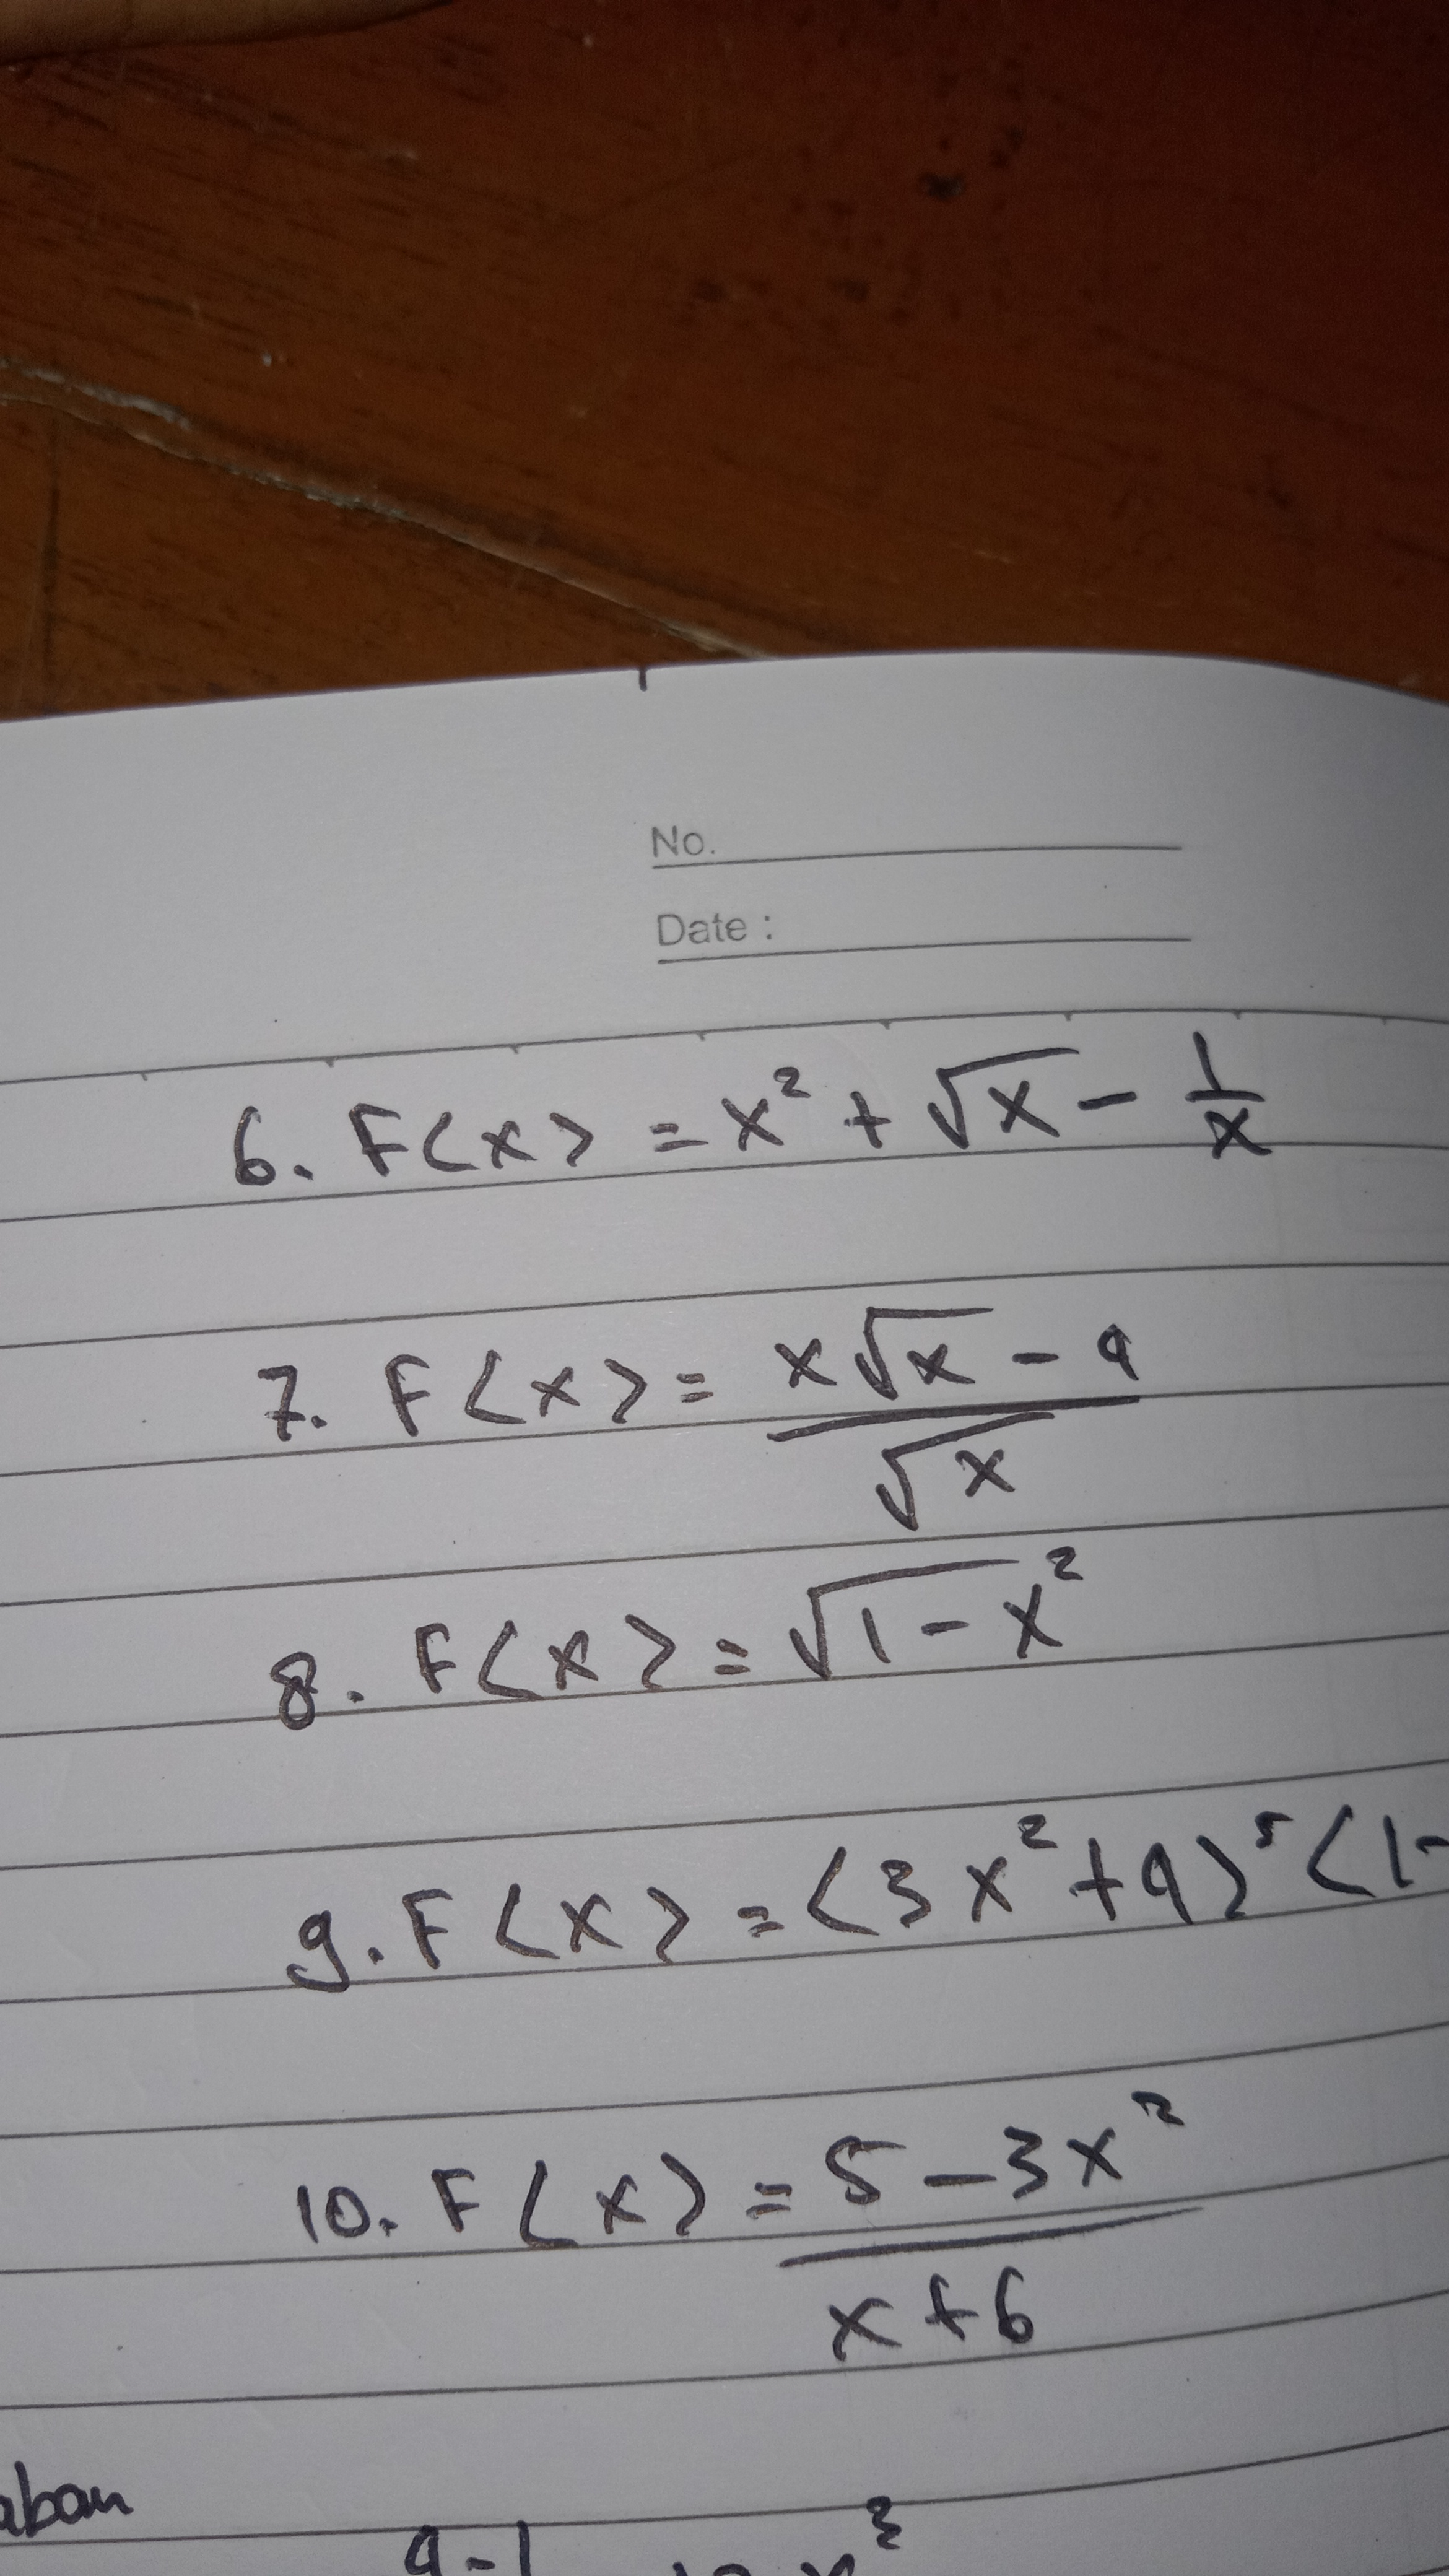 No.
Date :
6. F(x) = x² + √x - 1/x
7. F(x) = x√x - 4
√x
8. F(x) = √1 - x²
9. F(x) = (3x² + 4)⁵ (1-
10. F(x) = 5 - 3x²
x + 6
aban
4-1